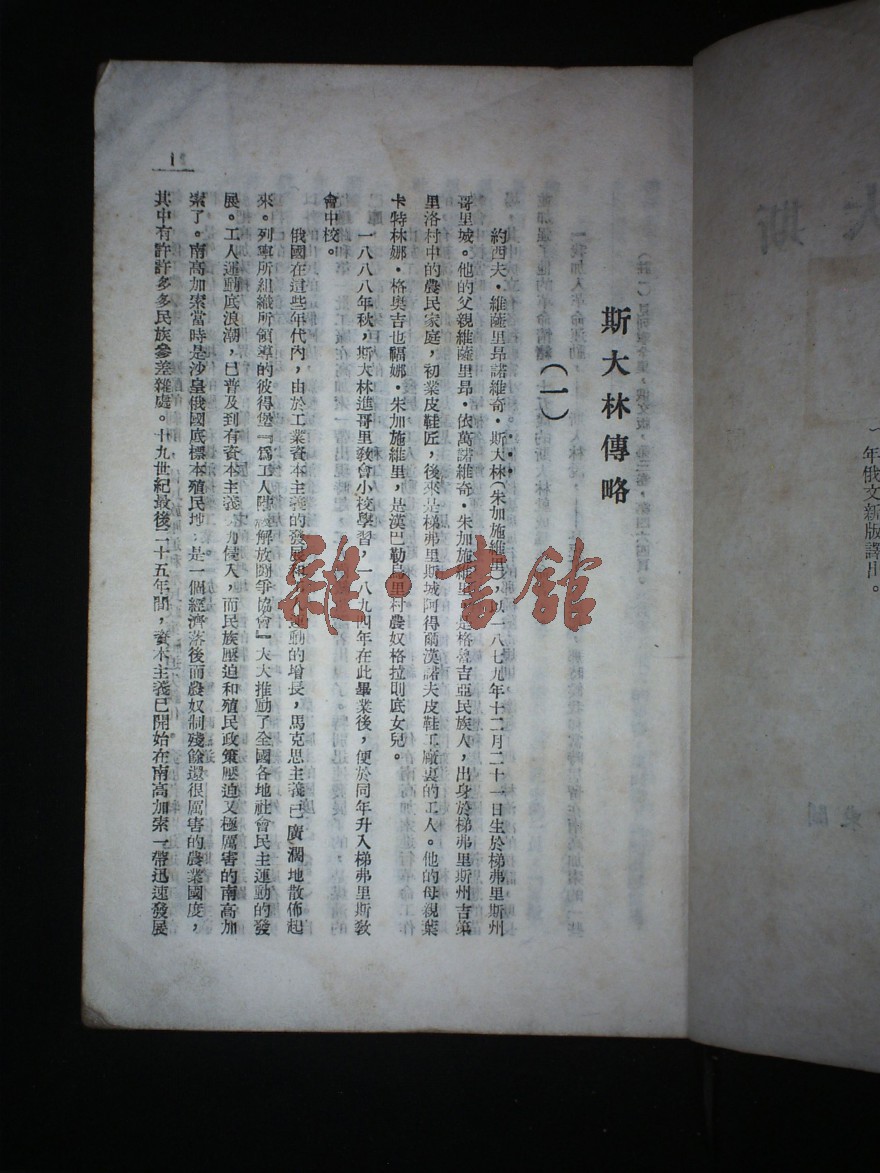 年俄文新版譯出。
斯大林傳略
(一)
約西夫·維薩里昂諾維奇·斯大林(朱加施維里),以一八七九年十二月二十一日生於梯弗里斯州
哥里城。他的父親維薩里昂·依萬諾維奇·朱加施維里,是格魯吉亞民族人,出身於梯弗里斯州吉第
里洛村中的農民家庭,初業皮鞋匠,後來是梯弗里斯城阿得爾漢諾夫皮鞋工廠裏的工人。他的母親葉
卡特林娜·格奧吉也福娜·朱加施維里,是漢巴勒烏里村農奴格拉則底女兒。
一八八八年秋,斯大林進哥里教會小校學習,一八九四年在此畢業後,便於同年升入梯弗里斯教
會中校。
俄國在這些年代內,由於工業資本主義的發展和 運動的增長,馬克思主義已廣濶地散佈起
來。列寧所組織所領導的彼得堡「爲工人階 解放鬪爭協會』大大推動了全國各地社會民主運動的發
展。工人運動底浪潮,已普及到有資本主義 力侵入,而民族壓迫和殖民政策壓迫又極厲害的南高加
索了。南高加索當時是沙皇俄國底標本殖民地,是一個經濟落後而農奴制殘餘還很厲害的農業國度,
其中有許許多多民族參差雜處。十九世紀最後二十五年間,資本主義已開始在南高加索一帶迅速發展
1
雜·書館